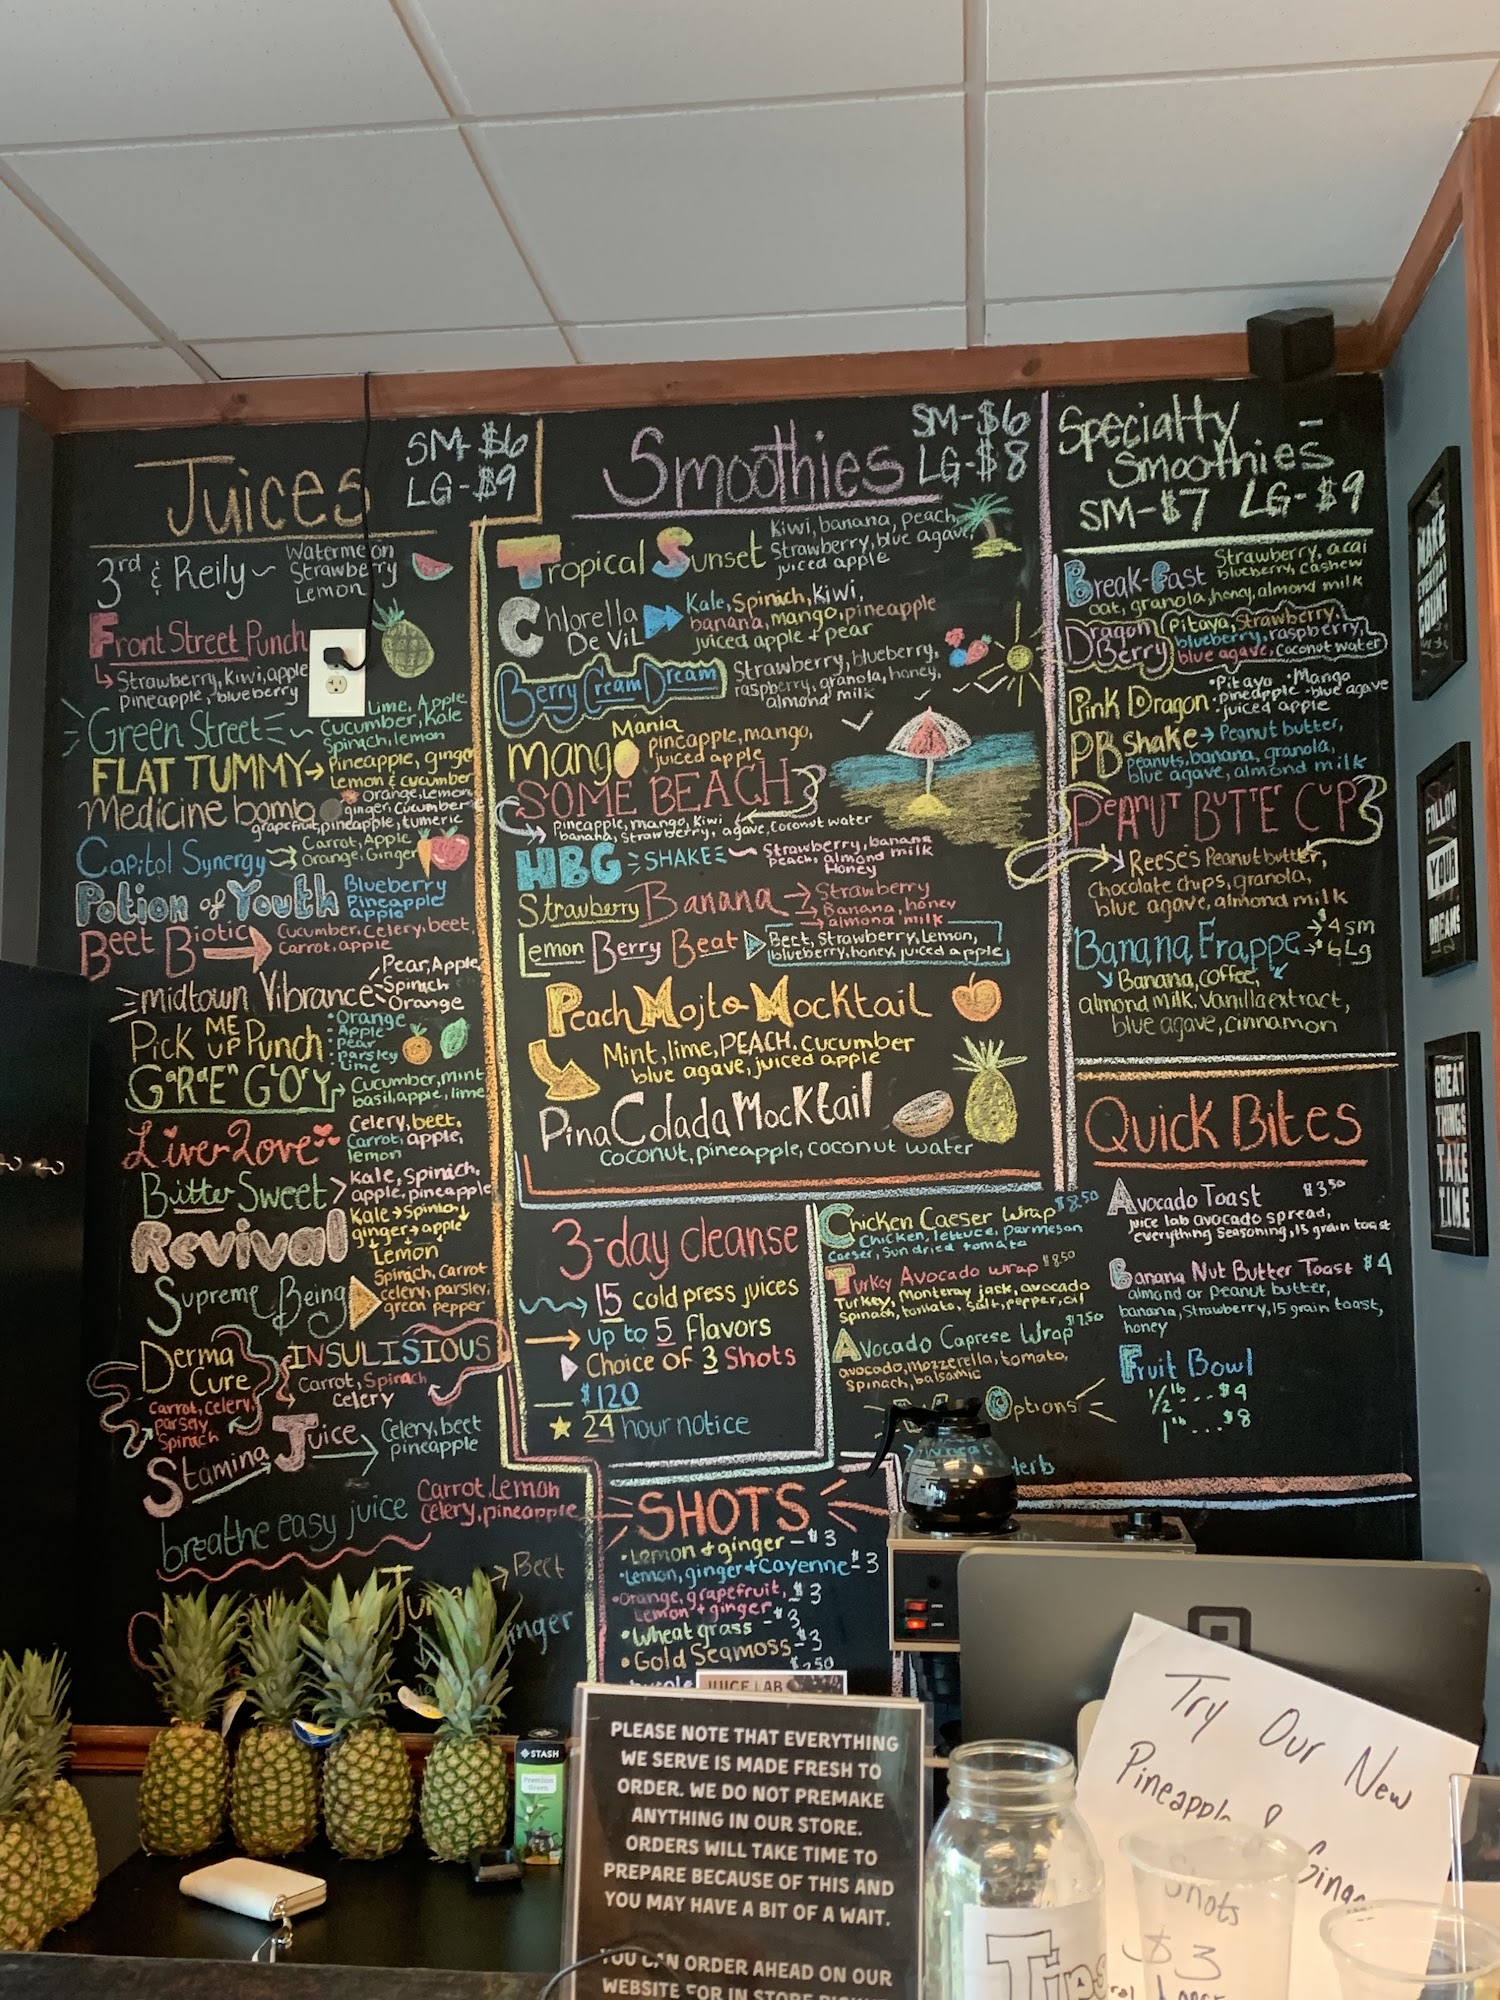 Juices
SM-$6
LG-$9
3rd & Reily ~ Watermelon
Strawberry
Lemon
Front Street Punch
Strawberry, Kiwi, apple
pineapple, blueberry
Green Street
Lime, Apple
Cucumber, Kale
Spinach, lemon
FLAT TUMMY
Pineapple, ginger
Lemon & cucumber
Medicine bomb
Orange, Lemon,
ginger, cucumber
grapefruit, pineapple, tumeric
Capitol Synergy
Carrot, Apple
Orange, Ginger
Potion of Youth
Blueberry
Pineapple
apple
Beet Biotic
Cucumber, Celery, beet,
Carrot, apple
midtown Vibrance
Pear, Apple,
Spinach
Orange
Pick ME UP Punch
• Orange
• Apple
• Pear
• Parsley
• Lime
GARDEN GLORY
Cucumber, mint
basil, apple, lime
Liver Love
Celery, beet,
Carrot, apple,
lemon
Bitter Sweet
Kale, Spinach,
apple, pineapple
Revival
Kale → Spinach
ginger → apple
Lemon
Supreme Being
Spinach, Carrot
celery, parsley,
green pepper
Derma
Cure
Carrot, Celery,
Parsely
Spinach
INSULISIOUS
Carrot, Spinach
celery
Stamina Juice
Celery, beet
pineapple
breathe easy juice
Carrot, Lemon
Celery, pineapple
Beet
Smoothies
SM-$6
LG-$8
Tropical Sunset
Kiwi, banana, peach
Strawberry, blue agave,
juiced apple
Chlorella
De Vil
Kale, Spinach, Kiwi,
banana, mango, pineapple
juiced apple + pear
Berry Cream Dream
Strawberry, blueberry,
raspberry, granola, honey,
almond milk
Mango Mania
pineapple, mango,
juiced apple
SOME BEACH
Pineapple, mango, Kiwi
banana, Strawberry, agave, coconut water
HBG SHAKE
Strawberry, banana
Peach, almond milk
Honey
Strawberry Banana
Strawberry
Banana, honey
almond milk
Lemon Berry Beat
Beet, Strawberry, Lemon,
blueberry, honey, juiced apple
Peach Mojto Mocktail
Mint, lime, PEACH, cucumber
blue agave, juiced apple
Pina Colada Mocktail
Coconut, pineapple, coconut water
3-day cleanse
15 cold press juices
up to 5 Flavors
Choice of 3 Shots
$120
24 hour notice
SHOTS
• Lemon + ginger - $3
• Lemon, ginger + Cayenne - $3
• Orange, grapefruit,
Lemon + ginger - $3
• Wheat grass - $3
• Gold Seamoss - $3
Specialty
Smoothies
SM-$7 LG-$9
Break-Fast
Strawberry, acai
blueberry, cashew
oat, granola, hony, almond milk
Dragon
Berry
Pitaya, Strawberry,
blueberry, raspberry,
blue agave, coconut water
Pink Dragon
• Pitaya • Mango
• pineapple • blue agave
• juiced apple
PB Shake → Peanut butter,
peanuts, banana, granola,
blue agave, almond milk
PEANUT BUTTER CUP
Reese's Peanut butter,
Chocolate chips, granola,
blue agave, almond milk
Banana Frappe
$4 sm
$6 Lg
Banana, coffee,
almond milk, Vanilla extract,
blue agave, cinnamon
Quick Bites
Chicken Caeser Wrap $8.50
Chicken, lettuce, parmesan
Caeser, sun dried tomato
Turkey Avocado wrap $8.50
Turkey, Monteray jack, avocado
Spinach, tomato, Salt, pepper, oil
Avocado Caprese Wrap $7.50
avocado, mozzerella, tomato,
Spinach, balsamic
Options
Wheat
Herb
Avocado Toast $3.50
Juice lab avocado spread,
everything Seasoning, 15 grain toast
Banana Nut Butter Toast $4
almond or peanut butter,
banana, Strawberry, 15 grain toast,
honey
Fruit Bowl
1/2 lb .... $4
1 lb .... $8
MAKE
EVERYDAY
COUNT
FOLLOW
YOUR
DREAMS
GREAT
THINGS
TAKE
TIME
STASH
Premium
Green
JUICE LAB
PLEASE NOTE THAT EVERYTHING
WE SERVE IS MADE FRESH TO
ORDER. WE DO NOT PREMAKE
ANYTHING IN OUR STORE.
ORDERS WILL TAKE TIME TO
PREPARE BECAUSE OF THIS AND
YOU MAY HAVE A BIT OF A WAIT.
YOU CAN ORDER AHEAD ON OUR
WEBSITE FOR IN STORE
Try Our New
Pineapple & Ginger
Shots
$3
Tips